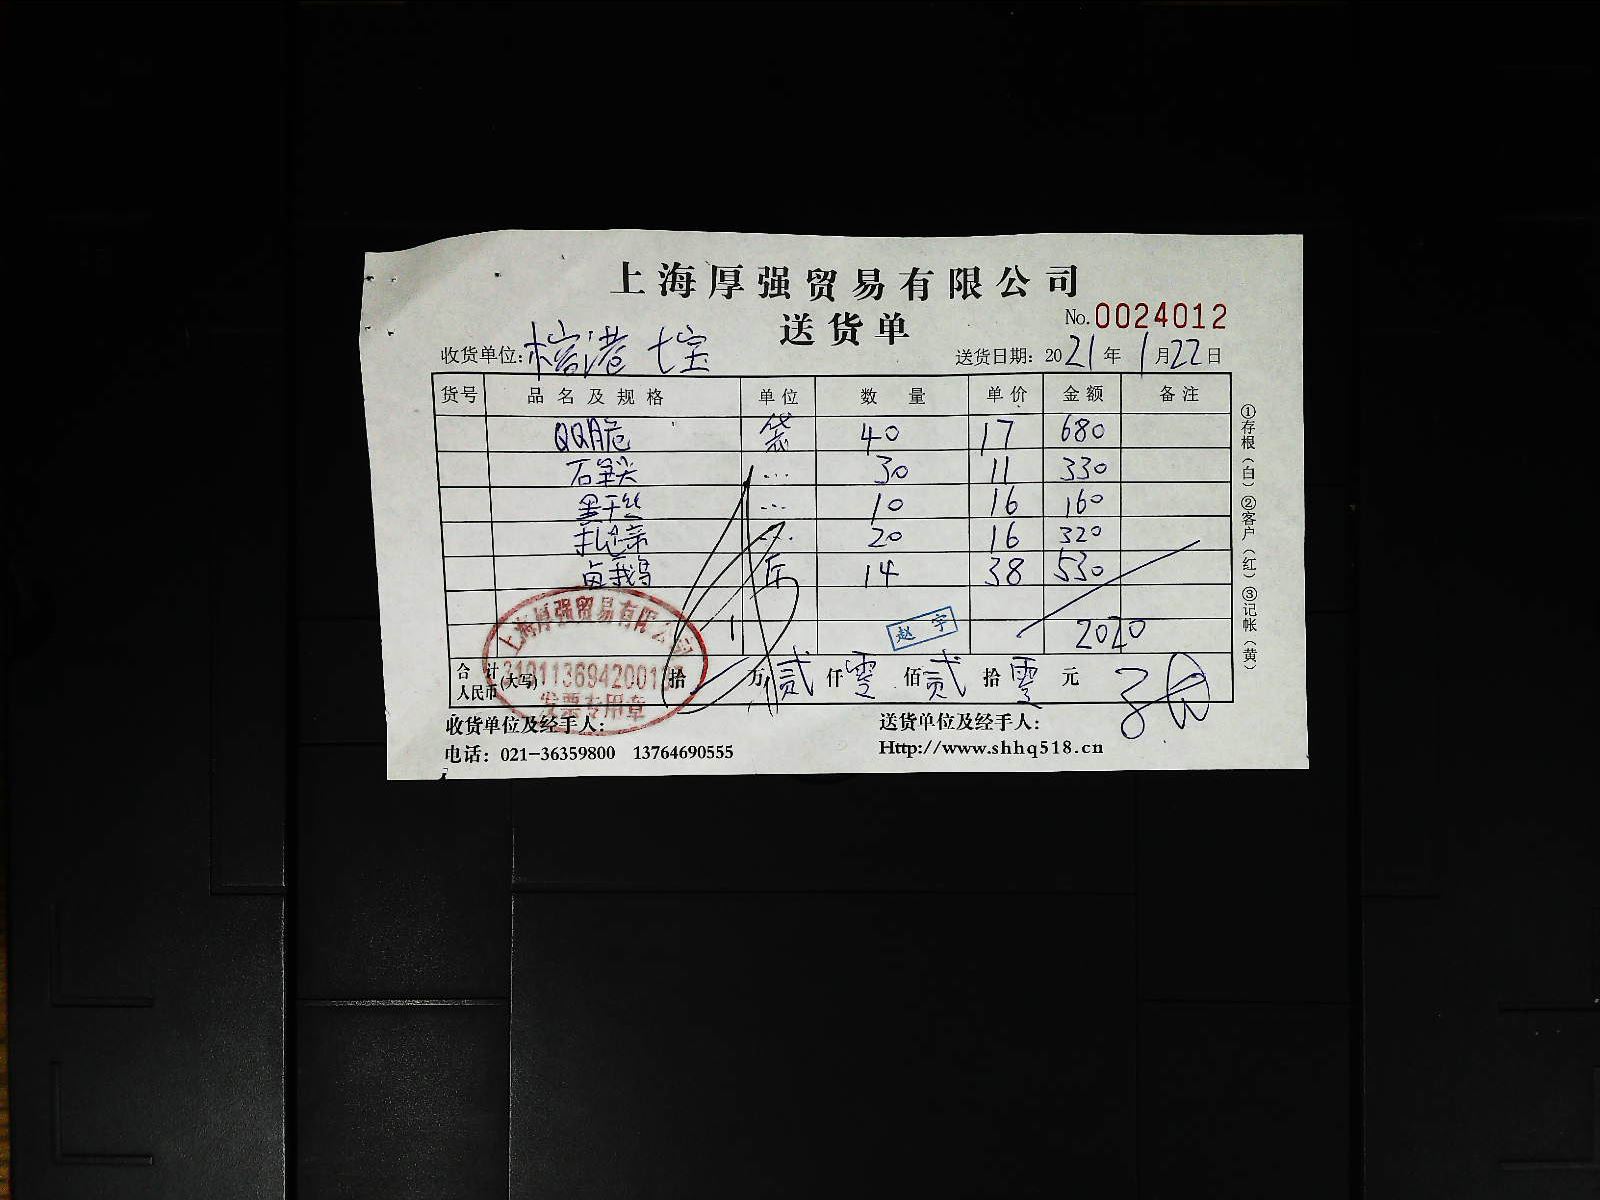 上海厚强贸易有限公司
送货单
No.0024012
收货单位: 榕港 七宝
送货日期: 2021年1月22日
货号 品名及规格 单位 数量 单价 金额 备注
QQ脆 袋 40 17 680
石笋尖 ... 30 11 330
黑干丝 ... 10 16 160
扎蹄 ... 20 16 320
卤鹅 斤 14 38 530
赵宇
2020
合计人民币(大写) 拾 万 贰 仟 零 佰 贰 拾 零 元
上海厚强贸易有限公司
发票专用章
收货单位及经手人:
送货单位及经手人:
电话: 021-36359800 13764690555
Http://www.shhq518.cn
①存根(白) ②客户(红) ③记帐(黄)